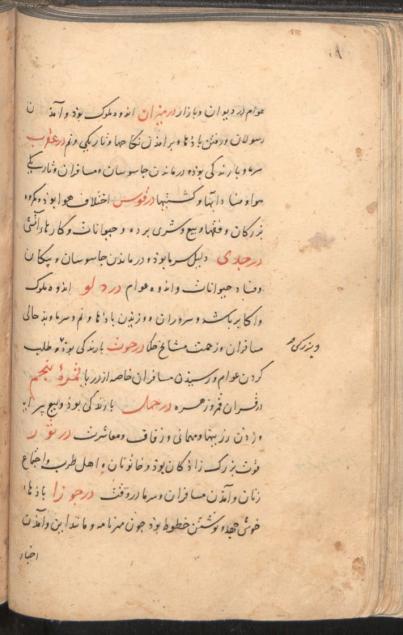 عوام در دیوان و بازار در میزان اندوه ملوک بود و آمدن
رسولان و رفتن بادها و برآمدن نکاحها و تاریکی و نم در عقرب
سرما و بارندگی بود و درماندن جاسوسان و مسافران و تاریکی
هوا و فساد آبها و کشتیها در قوس اختلاف هوا بود و
بزرگان و فقها و بیع و شری برده و حیوانات و کارهاء آتشی
در جدی دلیل سرما بود و درماندن جاسوسان و پیکان
و فساد حیوانات و اندوه عوام در دلو اندوه ملوک
و اکابر باشد و سروران و وزیدن بادها و نم و سرما و بدحالی
مسافران و زحمت مشایخ در حوت بارندگی بود و طلب
و بزرگی
کردن عوام و رسیدن مسافران خاصه از دریا ثمرهٔ پنجم
در قران قمر و زهره در حمل بارندگی بود و بیع پیرایه
و زدن زینتها و مهمانی و زفاف و معاشرت در ثور
قوت بزرگ زادگان بود و خاتونان و اهل طرب و اجتماع
زنان و آمدن مسافران و سرما در وقت در جوزا بادهاء
خوش جهد و نوشتن خطوط بود چون مهرنامه و مانند این و آمدن
اخبار